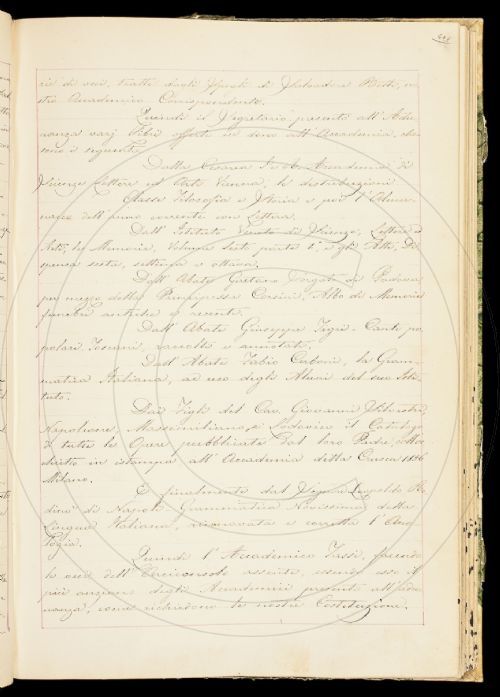 rie di voci, tratte dagli Spogli di Melchiorre
stro Accademico Corrispondente.
Quindi il Segretario presentò all'Adu-
nanza varj Libri offerti in dono all'Accademia, che
sono i seguenti:
Dalla Cesarea I. e R. Accademia di
Scienze Lettere ed Arti Vienna, le distribuzioni
Classe Filosofia e Storia e più l'Alma-
nacco dell'anno corrente con Lettera.
Dall'Istituto Veneto di Scienze, Lettere e
Arti, le Memorie, Volume parte e gli Atti, Di-
spensa sesta, settima e ottava.
Dall'Abate Gaetano di Padova
per mezzo della Principessa Corsini, Albo di Memorie
funebri antiche e recenti.
Dall'Abate Giuseppe Tigri - Canti po-
polari Toscani, raccolti e annotati.
Dall'Abate Fabio Carboni, la Gram-
matica Italiana, ad uso degli Alunni del suo Isti-
tuto.
Dai Figli del Cav. Giovanni
Napoleone, Massimiliano e Lodovico il Catalogo
di tutte le Opere pubblicate dal loro Padre,
in istampa all'Accademia della Crusca 1836
Milano.
E finalmente dal Signor Leopoldo Ro-
dinò di Napoli Grammatica Novissima della
Lingua Italiana, rinnovata e corretta
Quindi l'Accademico Tassi, facendo
le veci dell'Arciconsolo assente, essendo esso il
più anziano degli Accademici presenti all'Adu-
nanza, come richiedono le nostre Costituzioni,